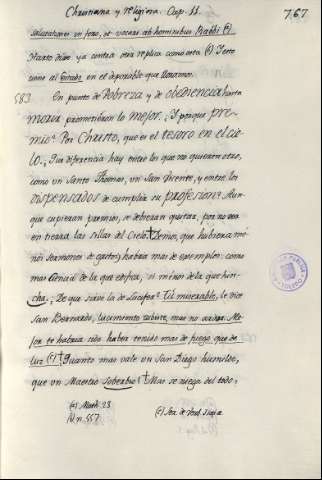 Christiana y religiosa. Cap. 11.
767
salutationes in foro, et vocari ab hominibus Rabbi (e)
Harto dixe ya contra otra replica como esta (f) Y esto
como al Estado en el deponible que llevamos.
583
En punto de Pobreza y de obediencia hasta
mora prometieron lo mejor. ¿Y porque pre-
mio? Por Christo, que es el tesoro en el cie-
lo. ¿Que diferencia hay entre los que no quisieron otro,
como un Santo Thomas, un San Vicente, y entre los
dispensados de cumplir su profesion? Aun-
que cupieran premios, se debieran quitar, por no ver
en tierra las sillas del Cielo. † Demos, que hubiera me-
nos sermones de gastos; habria mas de exemplos: como
mas caridad de la que edifica, si menos de la que hin-
cha. ¿De que sirve la de Lucifer? Tu miserable, le dice
San Bernardo, lucimiento tubiste, mas no ardor. Me-
jor te hubiera sido haber tenido mas de fuego que de
luz (f) ¿Quanto mas vale un San Diego humilde,
que un Maestro Soberbio? † Mas se niega del todo,
(e) Math. 23.
N. n. 557
(f) Ser. de